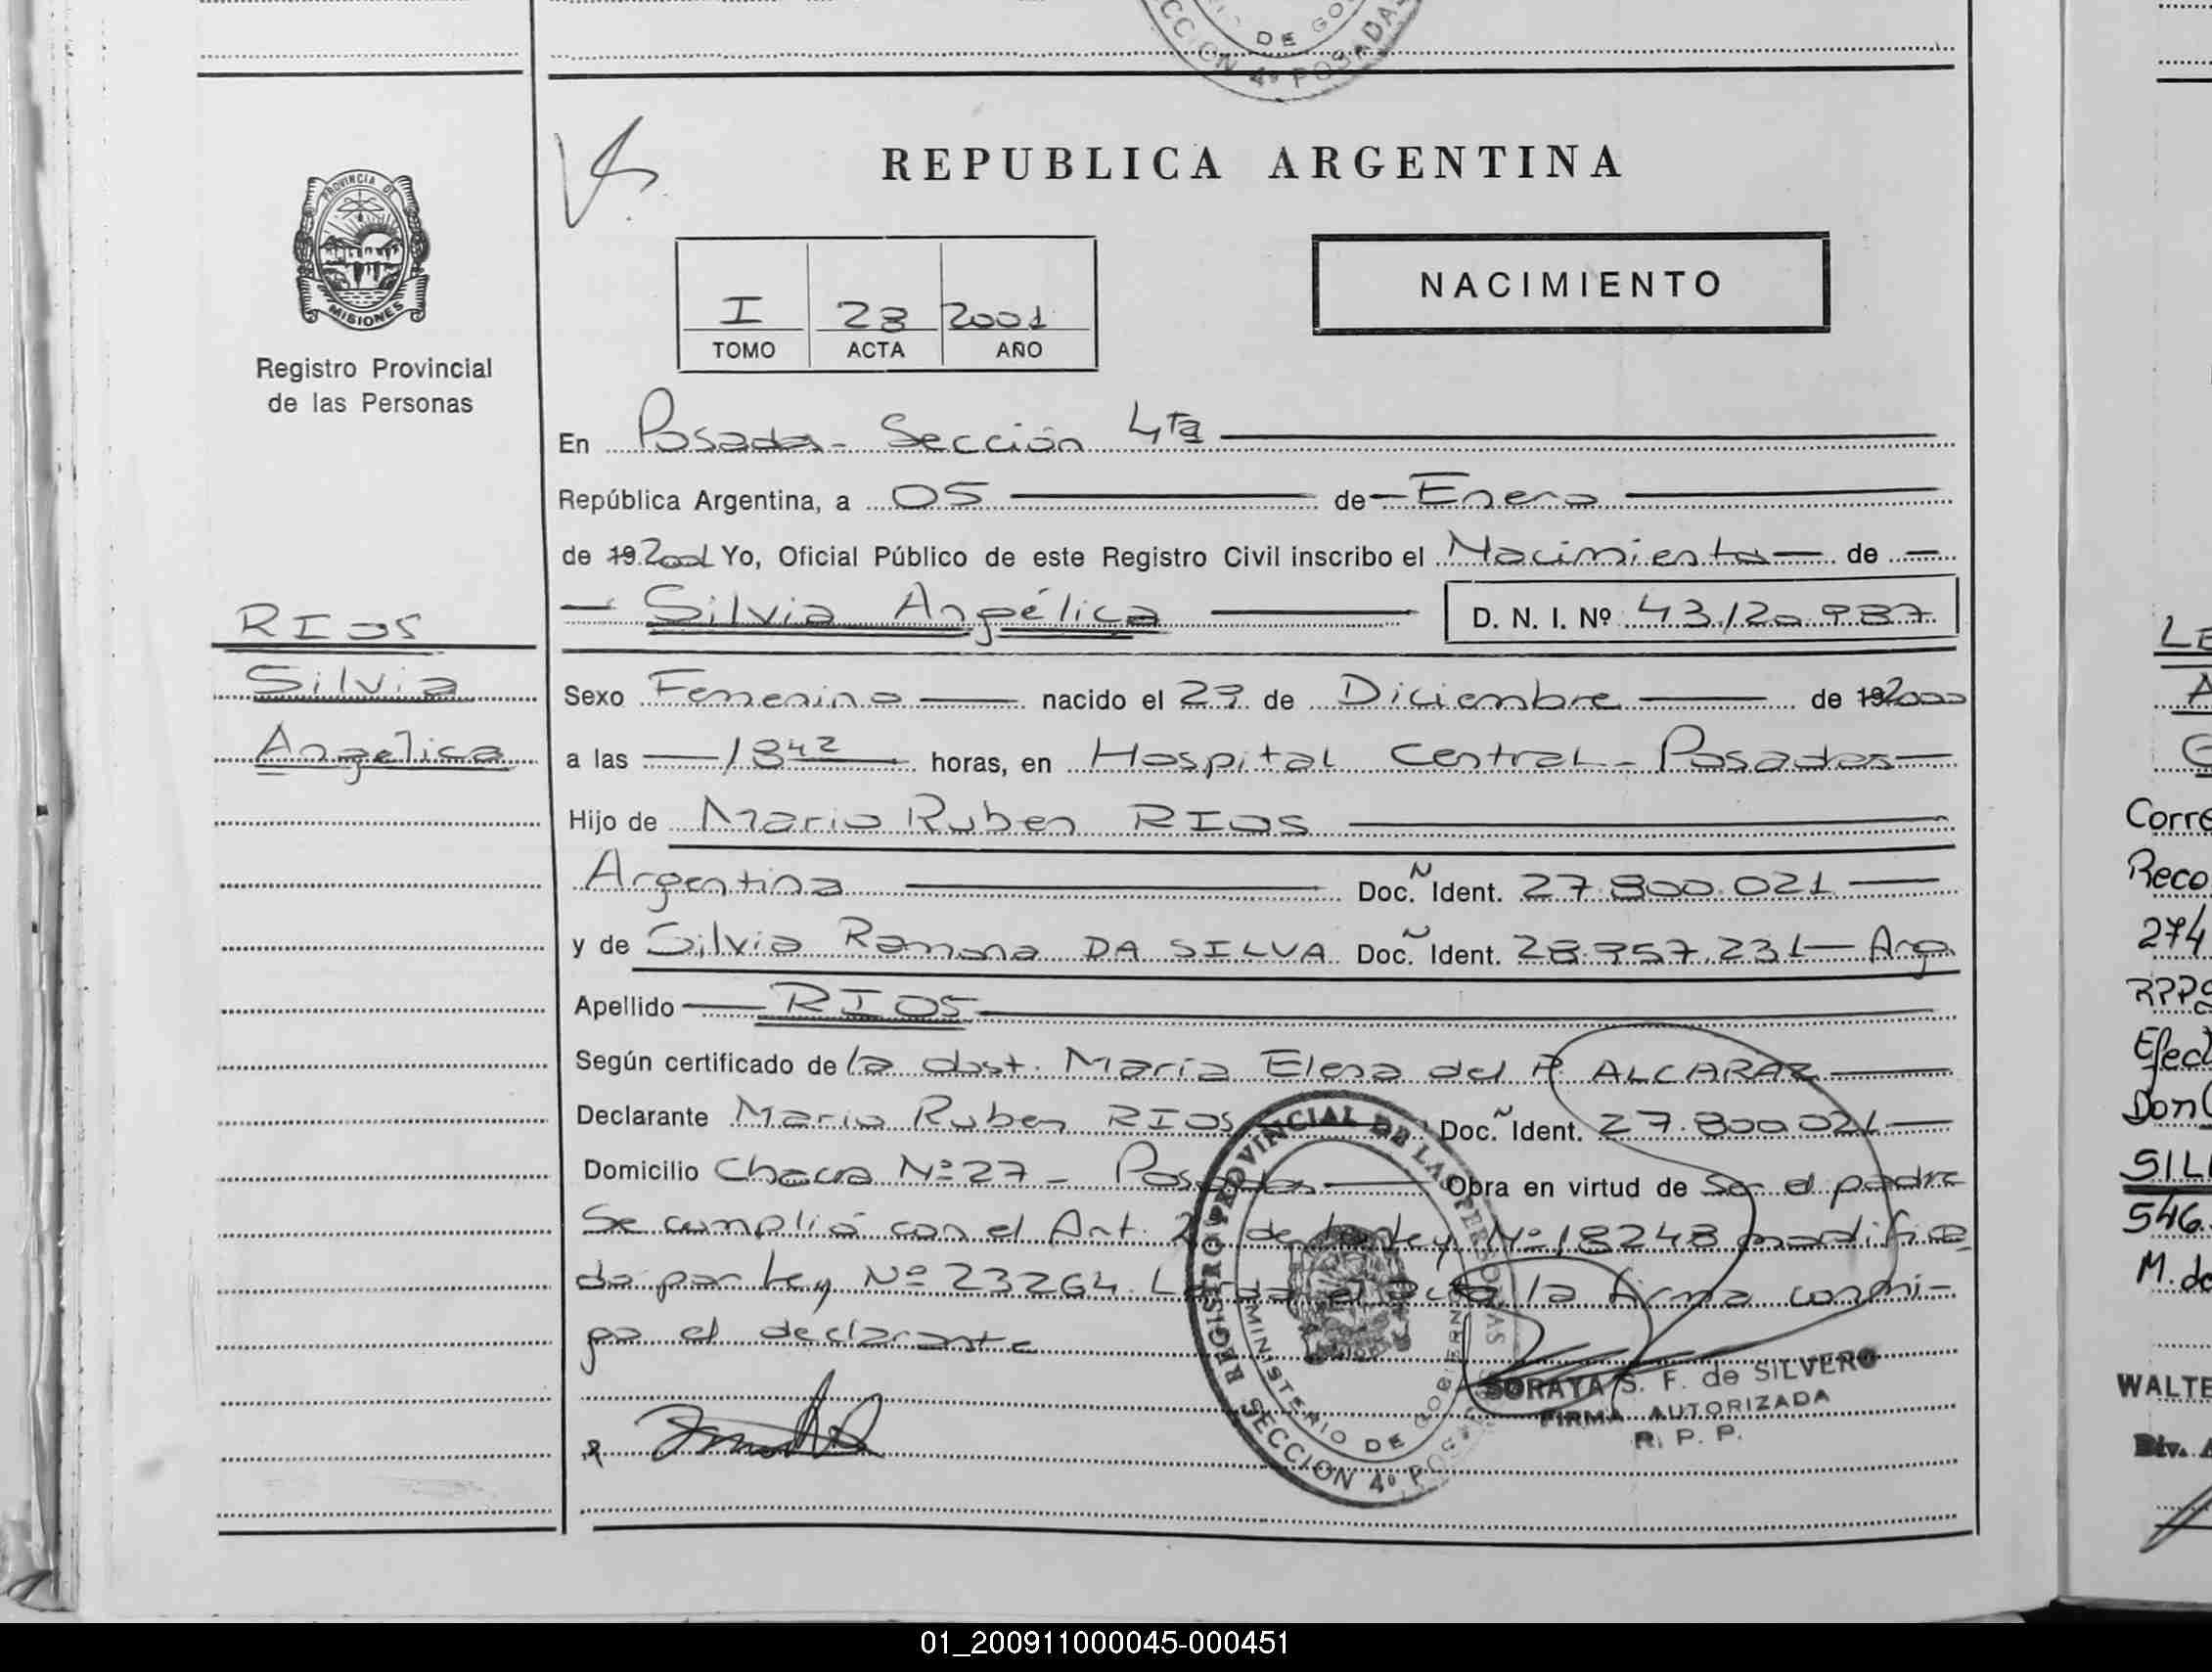 DE GO
CCION 4º POSADAS
REPUBLICA ARGENTINA
PROVINCIA DE
MISIONES
Registro Provincial
de las Personas
I 28 2001
TOMO ACTA AÑO
NACIMIENTO
En Posadas - Sección 4ta
República Argentina, a 05 de Enero
de 19 2001 Yo, Oficial Público de este Registro Civil inscribo el Nacimiento de
Silvia Angélica D. N. I. Nº 43.120.987
RIOS
Silvia
Angelica
Sexo Femenino nacido el 29 de Diciembre de 19 2000
a las 18 42 horas, en Hospital Central - Posadas
Hijo de Mario Ruben RIOS
Argentina Doc. Ident. 27.800.021
y de Silvia Ramona DA SILVA Doc. Ident. 28.957.231 - Arg.
Apellido RIOS
Según certificado de la obst. María Elena del P. ALCARAZ
Declarante Mario Ruben RIOS Doc. Ident. 27.800.021
Domicilio Chacra Nº 27 - Posadas Obra en virtud de ser el padre
Se cumplió con el Art. 2 de la Ley Nº 18248 modifica
da por Ley Nº 23264. Leída el acta la firma conmi-
go el declarante
REGISTRO PROVINCIAL DE LAS PERSONAS
MINISTERIO DE GOBIERNO
SECCION 4º POSADAS
SORAYA S. F. de SILVERO
FIRMA AUTORIZADA
R. P. P.
Corre
Reco
274
Don
SIL
546.
WALTE
Div.
01_200911000045-000451